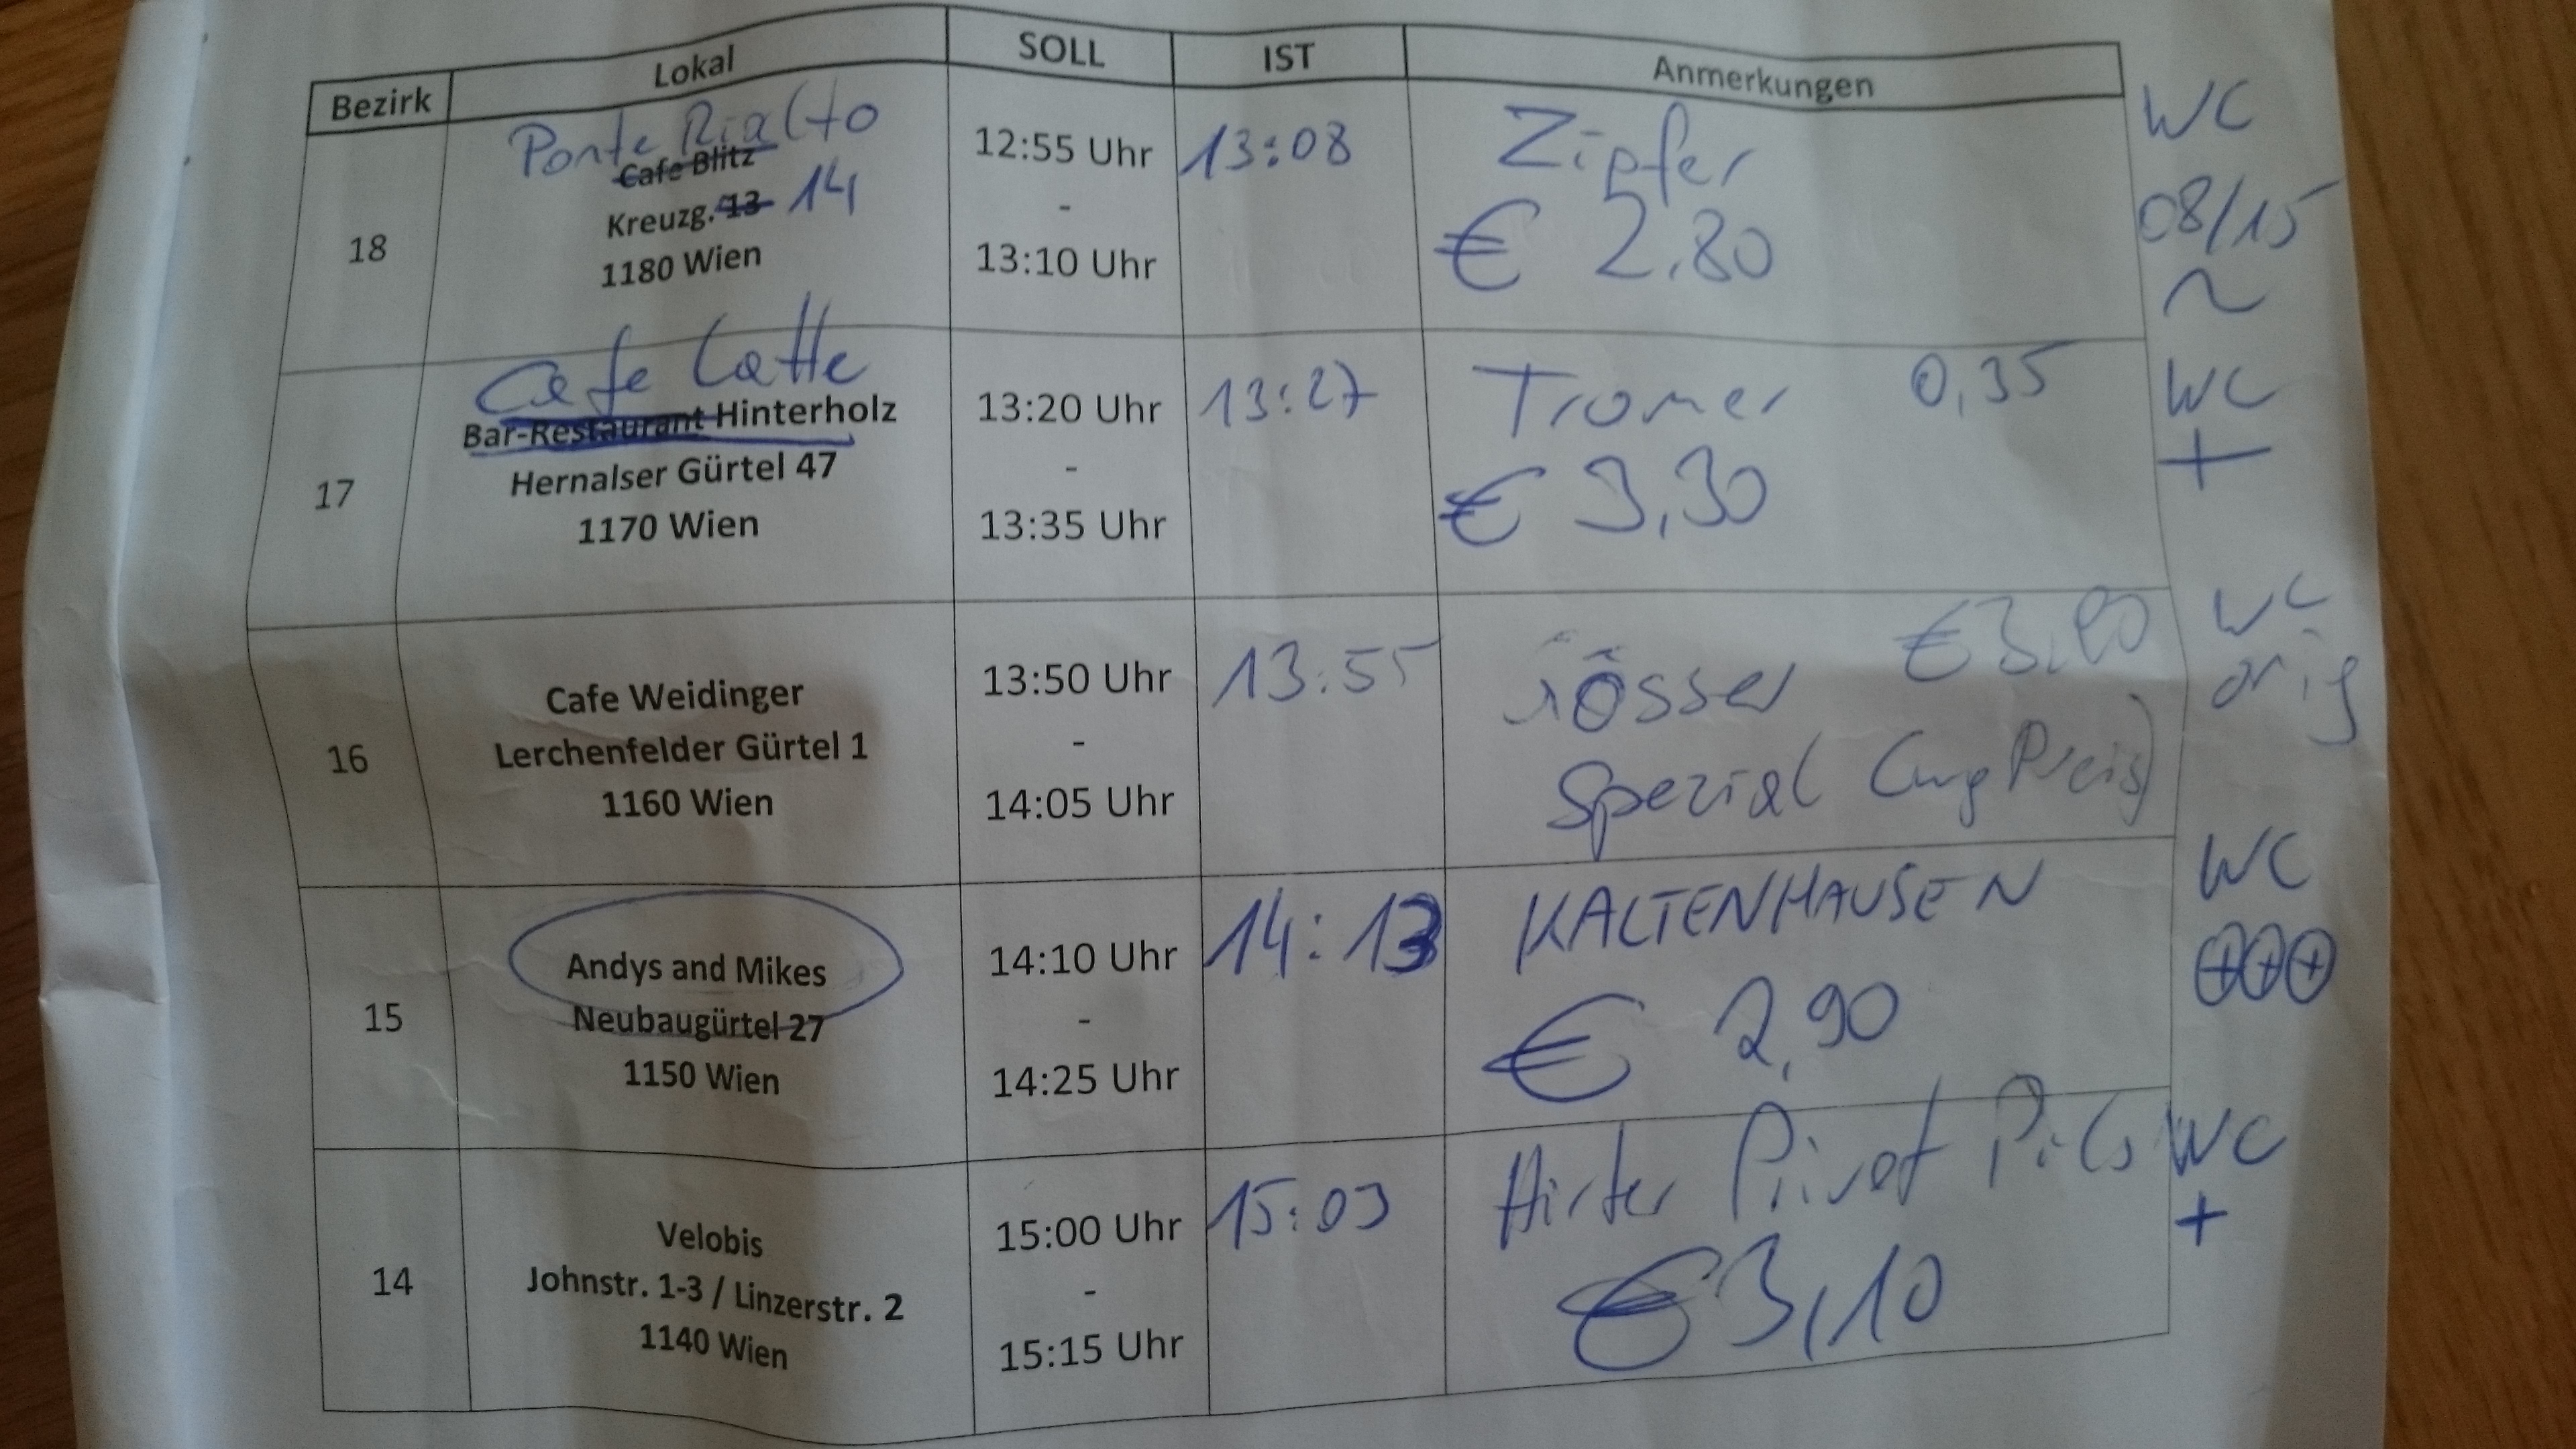 Bezirk Lokal SOLL IST Anmerkungen
Ponte Rialto
Cafe Blitz
Kreuzg. 13 14
1180 Wien
18
12:55 Uhr
-
13:10 Uhr
13:08
Zipfer
€ 2,80
WC
08/15
~
Cafe Latte
Bar-Restaurant Hinterholz
Hernalser Gürtel 47
1170 Wien
17
13:20 Uhr
-
13:35 Uhr
13:27
Trumer 0,35
€ 3,30
WC
+
Cafe Weidinger
Lerchenfelder Gürtel 1
1160 Wien
16
13:50 Uhr
-
14:05 Uhr
13:55
Gösser
Spezial Preis)
WC
orig
Andys and Mikes
Neubaugürtel 27
1150 Wien
15
14:10 Uhr
-
14:25 Uhr
14:13
KALTENHAUSEN
€ 2,90
WC
⊕⊕⊕
Velobis
Johnstr. 1-3 / Linzerstr. 2
1140 Wien
14
15:00 Uhr
-
15:15 Uhr
15:03
Hirter Privat Pils
€ 3,10
WC
+